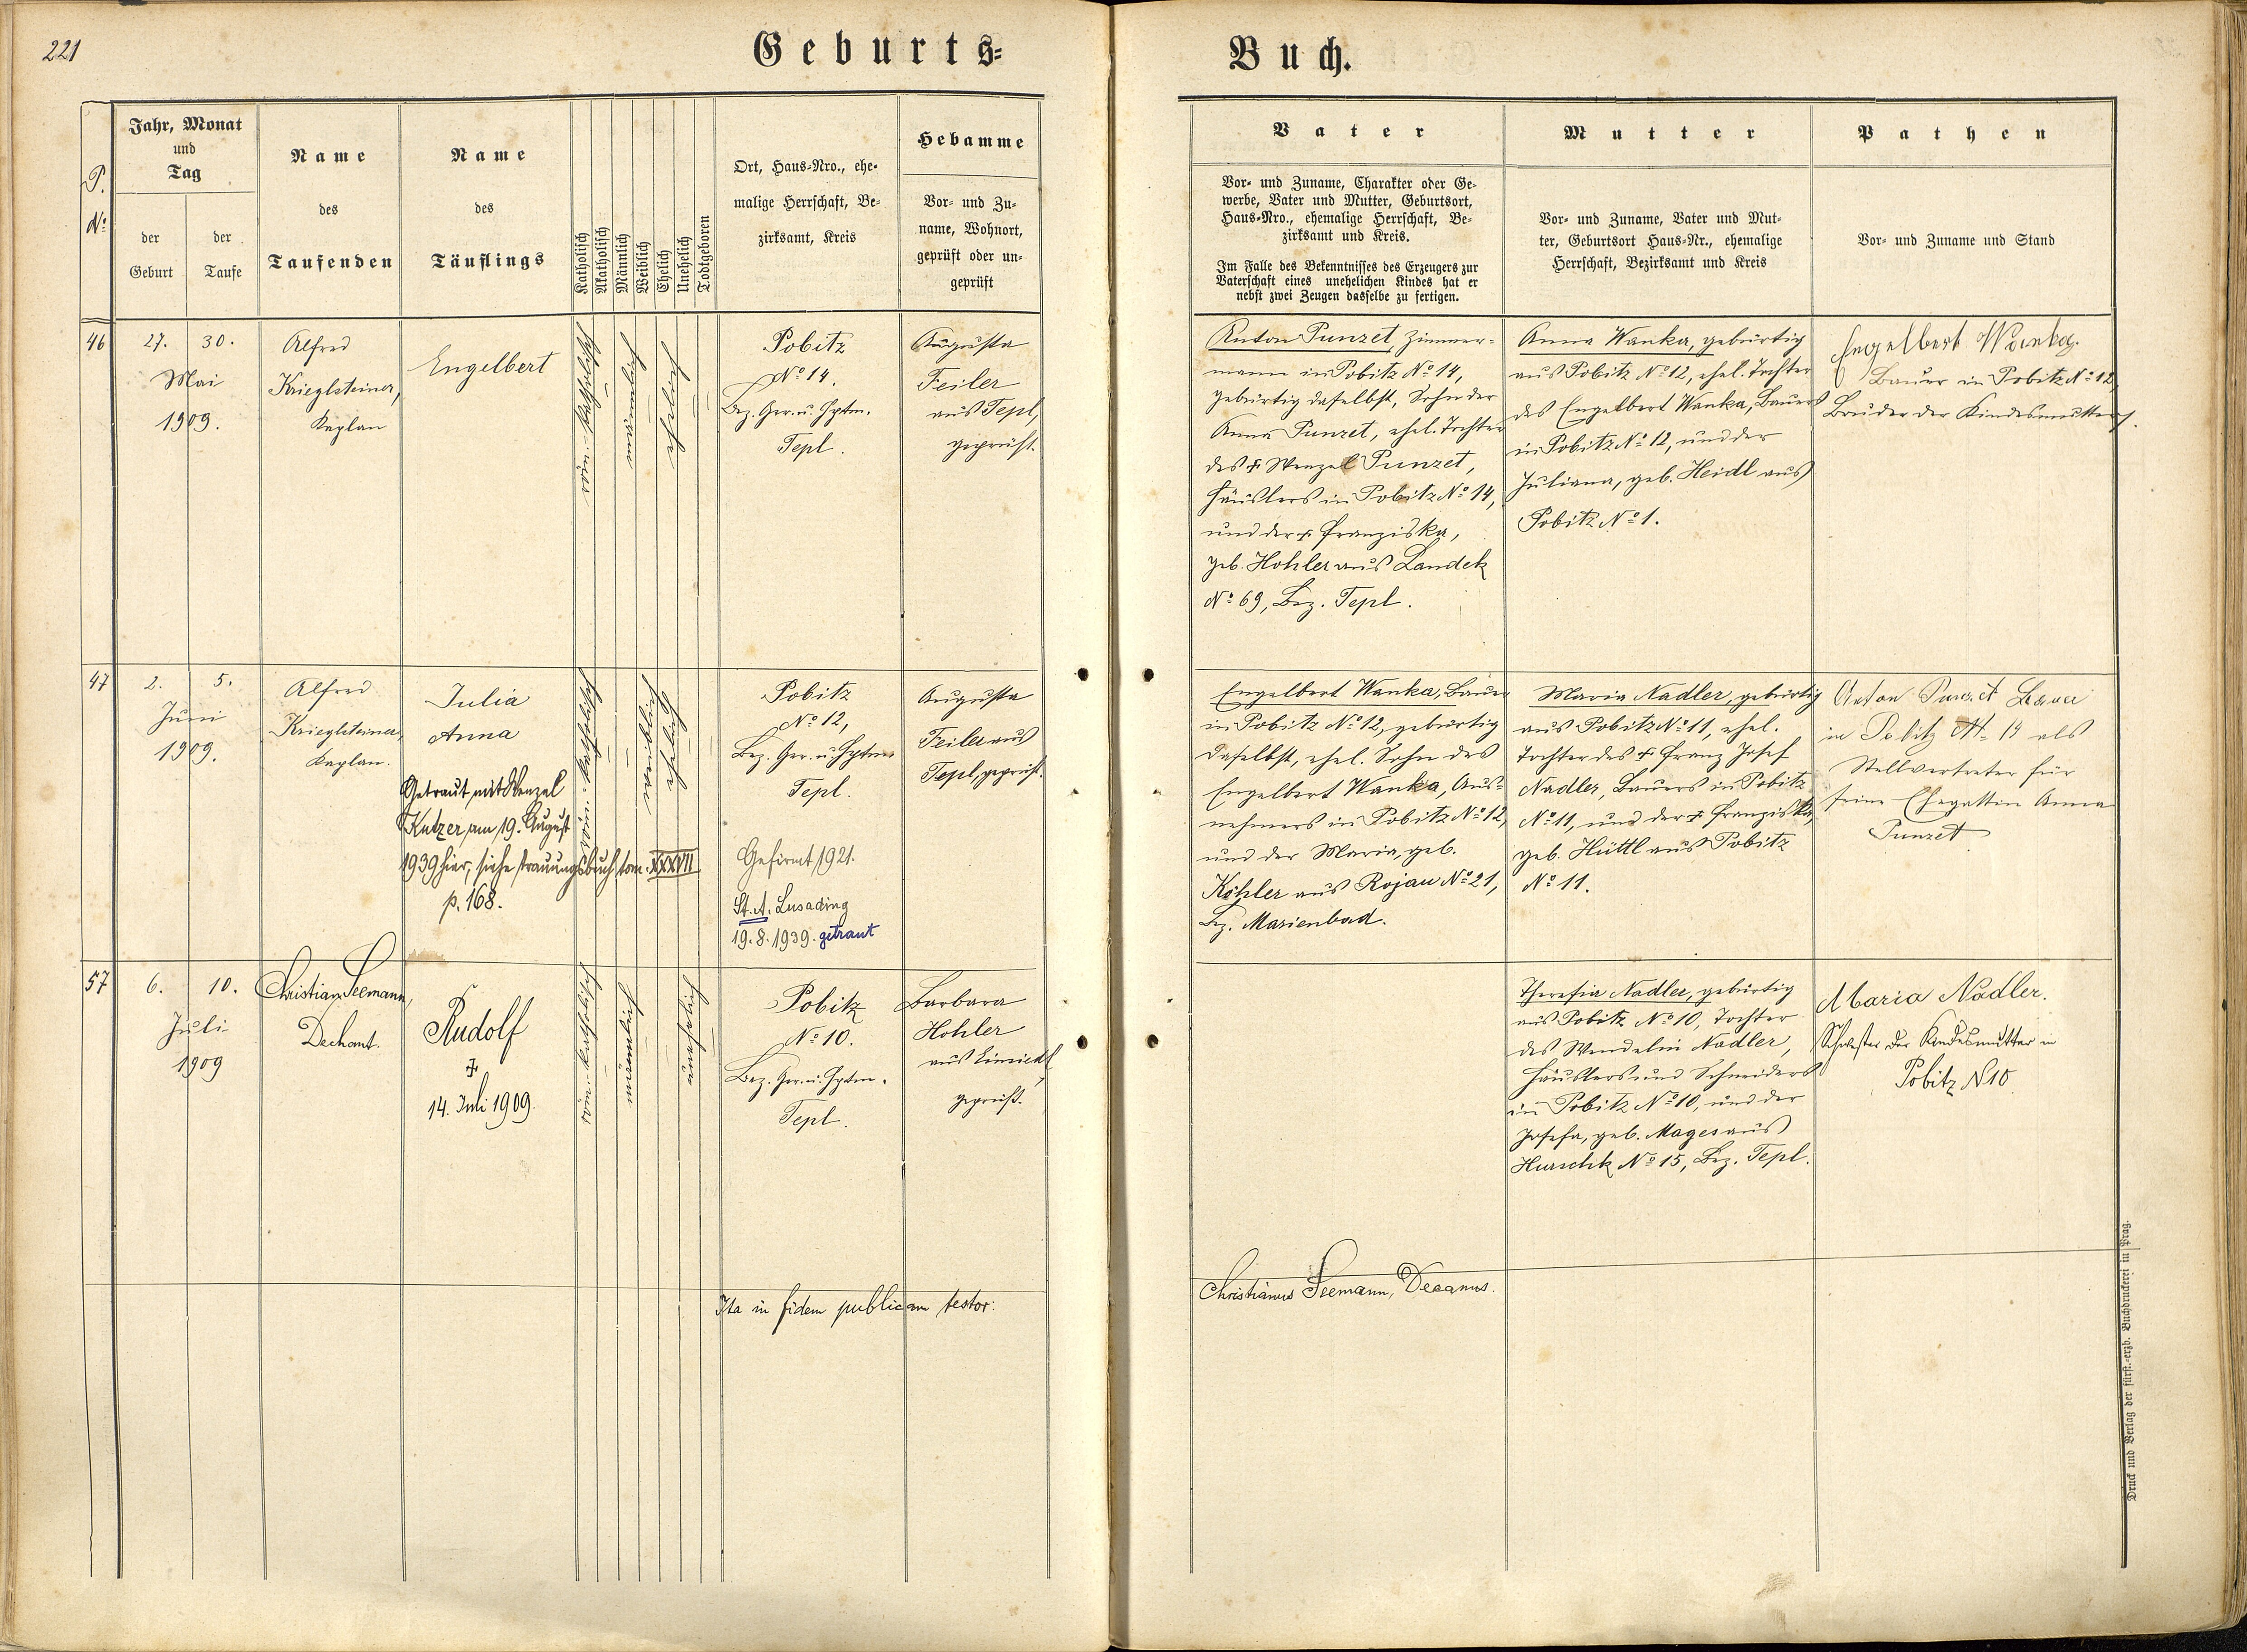 221
Geburts=
Buch.
P.
No
Jahr, Monat
und
Tag
der
Geburt
der
Taufe
Name
des
Taufenden
Name
des
Täuflings
Katholisch
Akatholisch
Männlich
Weiblich
Ehelich
Unehelich
Todtgeboren
Ort, Haus=Nro., ehe=
malige Herrschaft, Be=
zirksamt, Kreis
Hebamme
Vor= und Zu=
name, Wohnort,
geprüft oder un=
geprüft
Vater
Vor= und Zuname, Charakter oder Ge=
werbe, Vater und Mutter, Geburtsort,
Haus=Nro., ehemalige Herrschaft, Be=
zirksamt und Kreis.
Im Falle des Bekenntnisses des Erzeugers zur
Vaterschaft eines unehelichen Kindes hat er
nebst zwei Zeugen dasselbe zu fertigen.
Mutter
Vor= und Zuname, Vater und Mut=
ter, Geburtsort Haus=Nr., ehemalige
Herrschaft, Bezirksamt und Kreis
Pathen
Vor= und Zuname und Stand
46
27.
30.
Mai
1909.
Alfred
Krieglsteiner,
Kaplan
Engelbert
Pobitz
No 14.
Bez. Ger. u. Hptm.
Tepl.
Augusta
Feiler
aus Tepl,
geprüft.
Anton Punzet, Zimmer=
mann in Pobitz No 14,
gebürtig daselbst, Sohn der
Anna Punzet, ehel. Tochter
des + Wenzel Punzet,
Häuslers in Pobitz No 14,
und der + Franziska,
geb. Hohler aus Landek
No 69, Bez. Tepl.
Anna Wanka, gebürtig
aus Pobitz No 12, ehel. Tochter
des Engelbert Wanka, Bauers
in Pobitz No 12, und der
Juliana, geb. Heidl aus
Pobitz No 1.
Engelbert Wanka.
Bauer in Pobitz No 12,
Bruder der Kindesmutter.
47
2.
5.
Juni
1909.
Alfred
Krieglsteiner,
Kaplan.
Julia
Anna
Getraut mit Wenzel
Kutzer am 19. August
1939 hier, siehe Trauungsbuch tom. XXXVII
p. 168.
Pobitz
No 12,
Bez. Ger. u. Hptm.
Tepl.
Gefirmt 1921.
St. A. Lusading
19. 8. 1939. getraut
Augusta
Feiler aus
Tepl, geprüft.
Engelbert Wanka, Bauer
in Pobitz No 12, gebürtig
daselbst, ehel. Sohn des
Engelbert Wanka, Aus=
nehmers in Pobitz No 12,
und der Maria, geb.
Köhler aus Rojau No 21,
Bez. Marienbad.
Maria Nadler, gebürtig
aus Pobitz No 11, ehel.
Tochter des + Franz Josef
Nadler, Bauers in Pobitz
No 11, und der + Franziska,
geb. Hüttl aus Pobitz
No 11.
Anton Punzet Bauer
in Pobitz als
Stellvertreter für
seine Ehegattin Anna
Punzet
57
6.
10.
Juli
1909
Christian Seemann,
Dechant.
Rudolf
+
14. Juli 1909.
Pobitz
No 10.
Bez. Ger. u. Hptm.
Tepl.
Barbara
Hohler
aus Einsiedl,
geprüft.
Theresia Nadler, gebürtig
aus Pobitz No 10, Tochter
des Wendelin Nadler,
Häuslers und Schneiders
in Pobitz No 10, und der
Josefa, geb. Mages aus
Hurschk No 15, Bez. Tepl.
Maria Nadler.
Schwester der Kindesmutter in
Pobitz N 10
Ita in fidem publicam testor:
Christianus Seemann, Decanus.
Druck und Verlag der fürst.=erzb. Buchdruckerei in Prag.